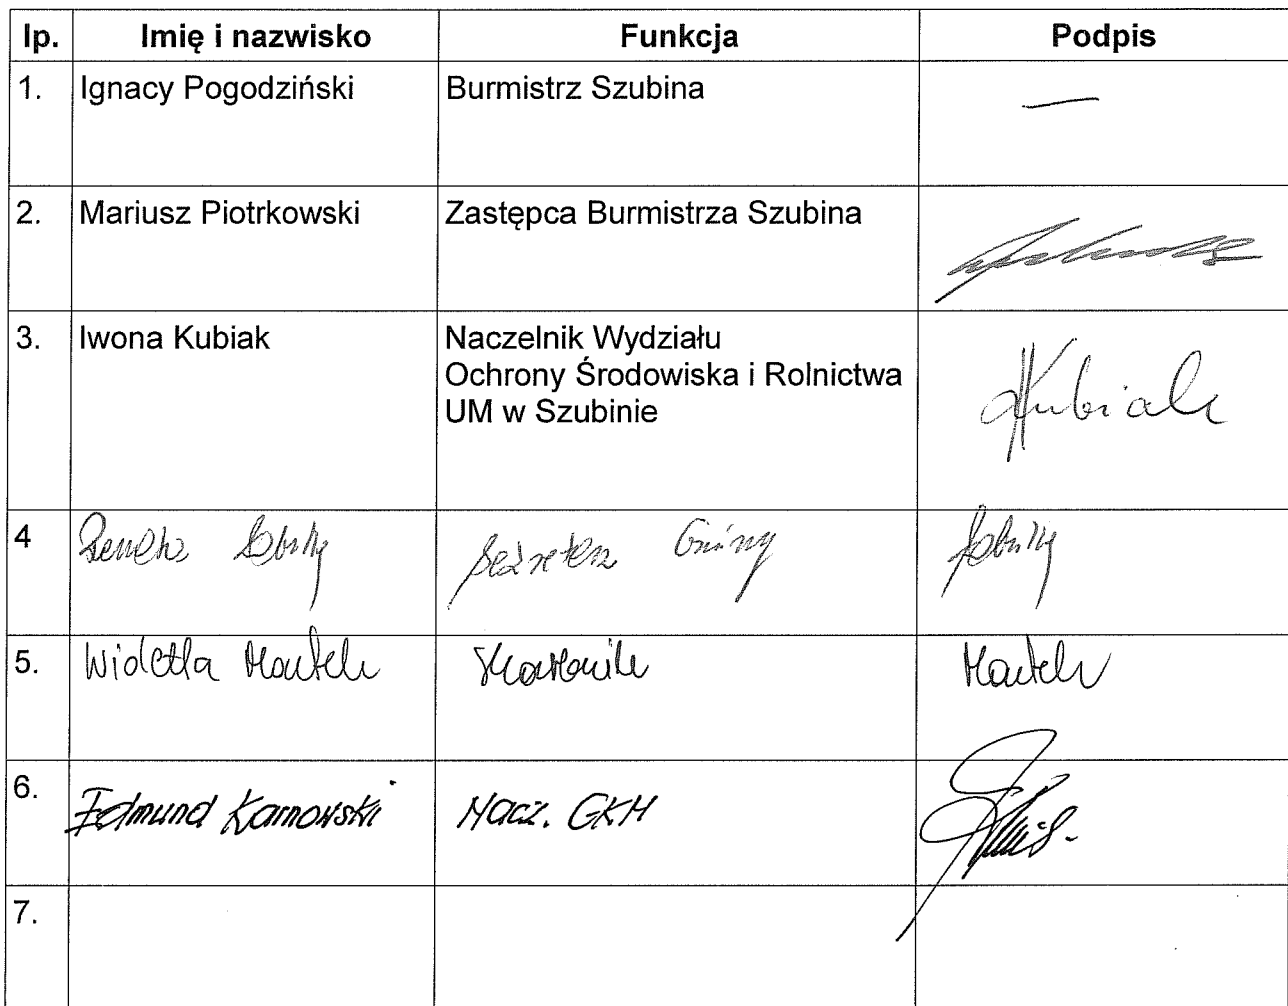 lp. Imię i nazwisko Funkcja Podpis
1. Ignacy Pogodziński Burmistrz Szubina —
2. Mariusz Piotrkowski Zastępca Burmistrza Szubina
3. Iwona Kubiak Naczelnik Wydziału
Ochrony Środowiska i Rolnictwa
UM w Szubinie
Kubiak
4 Gminy
5. Wioletta Skarbnik
6. Edmund Karnowski Nacz. GKM
7.